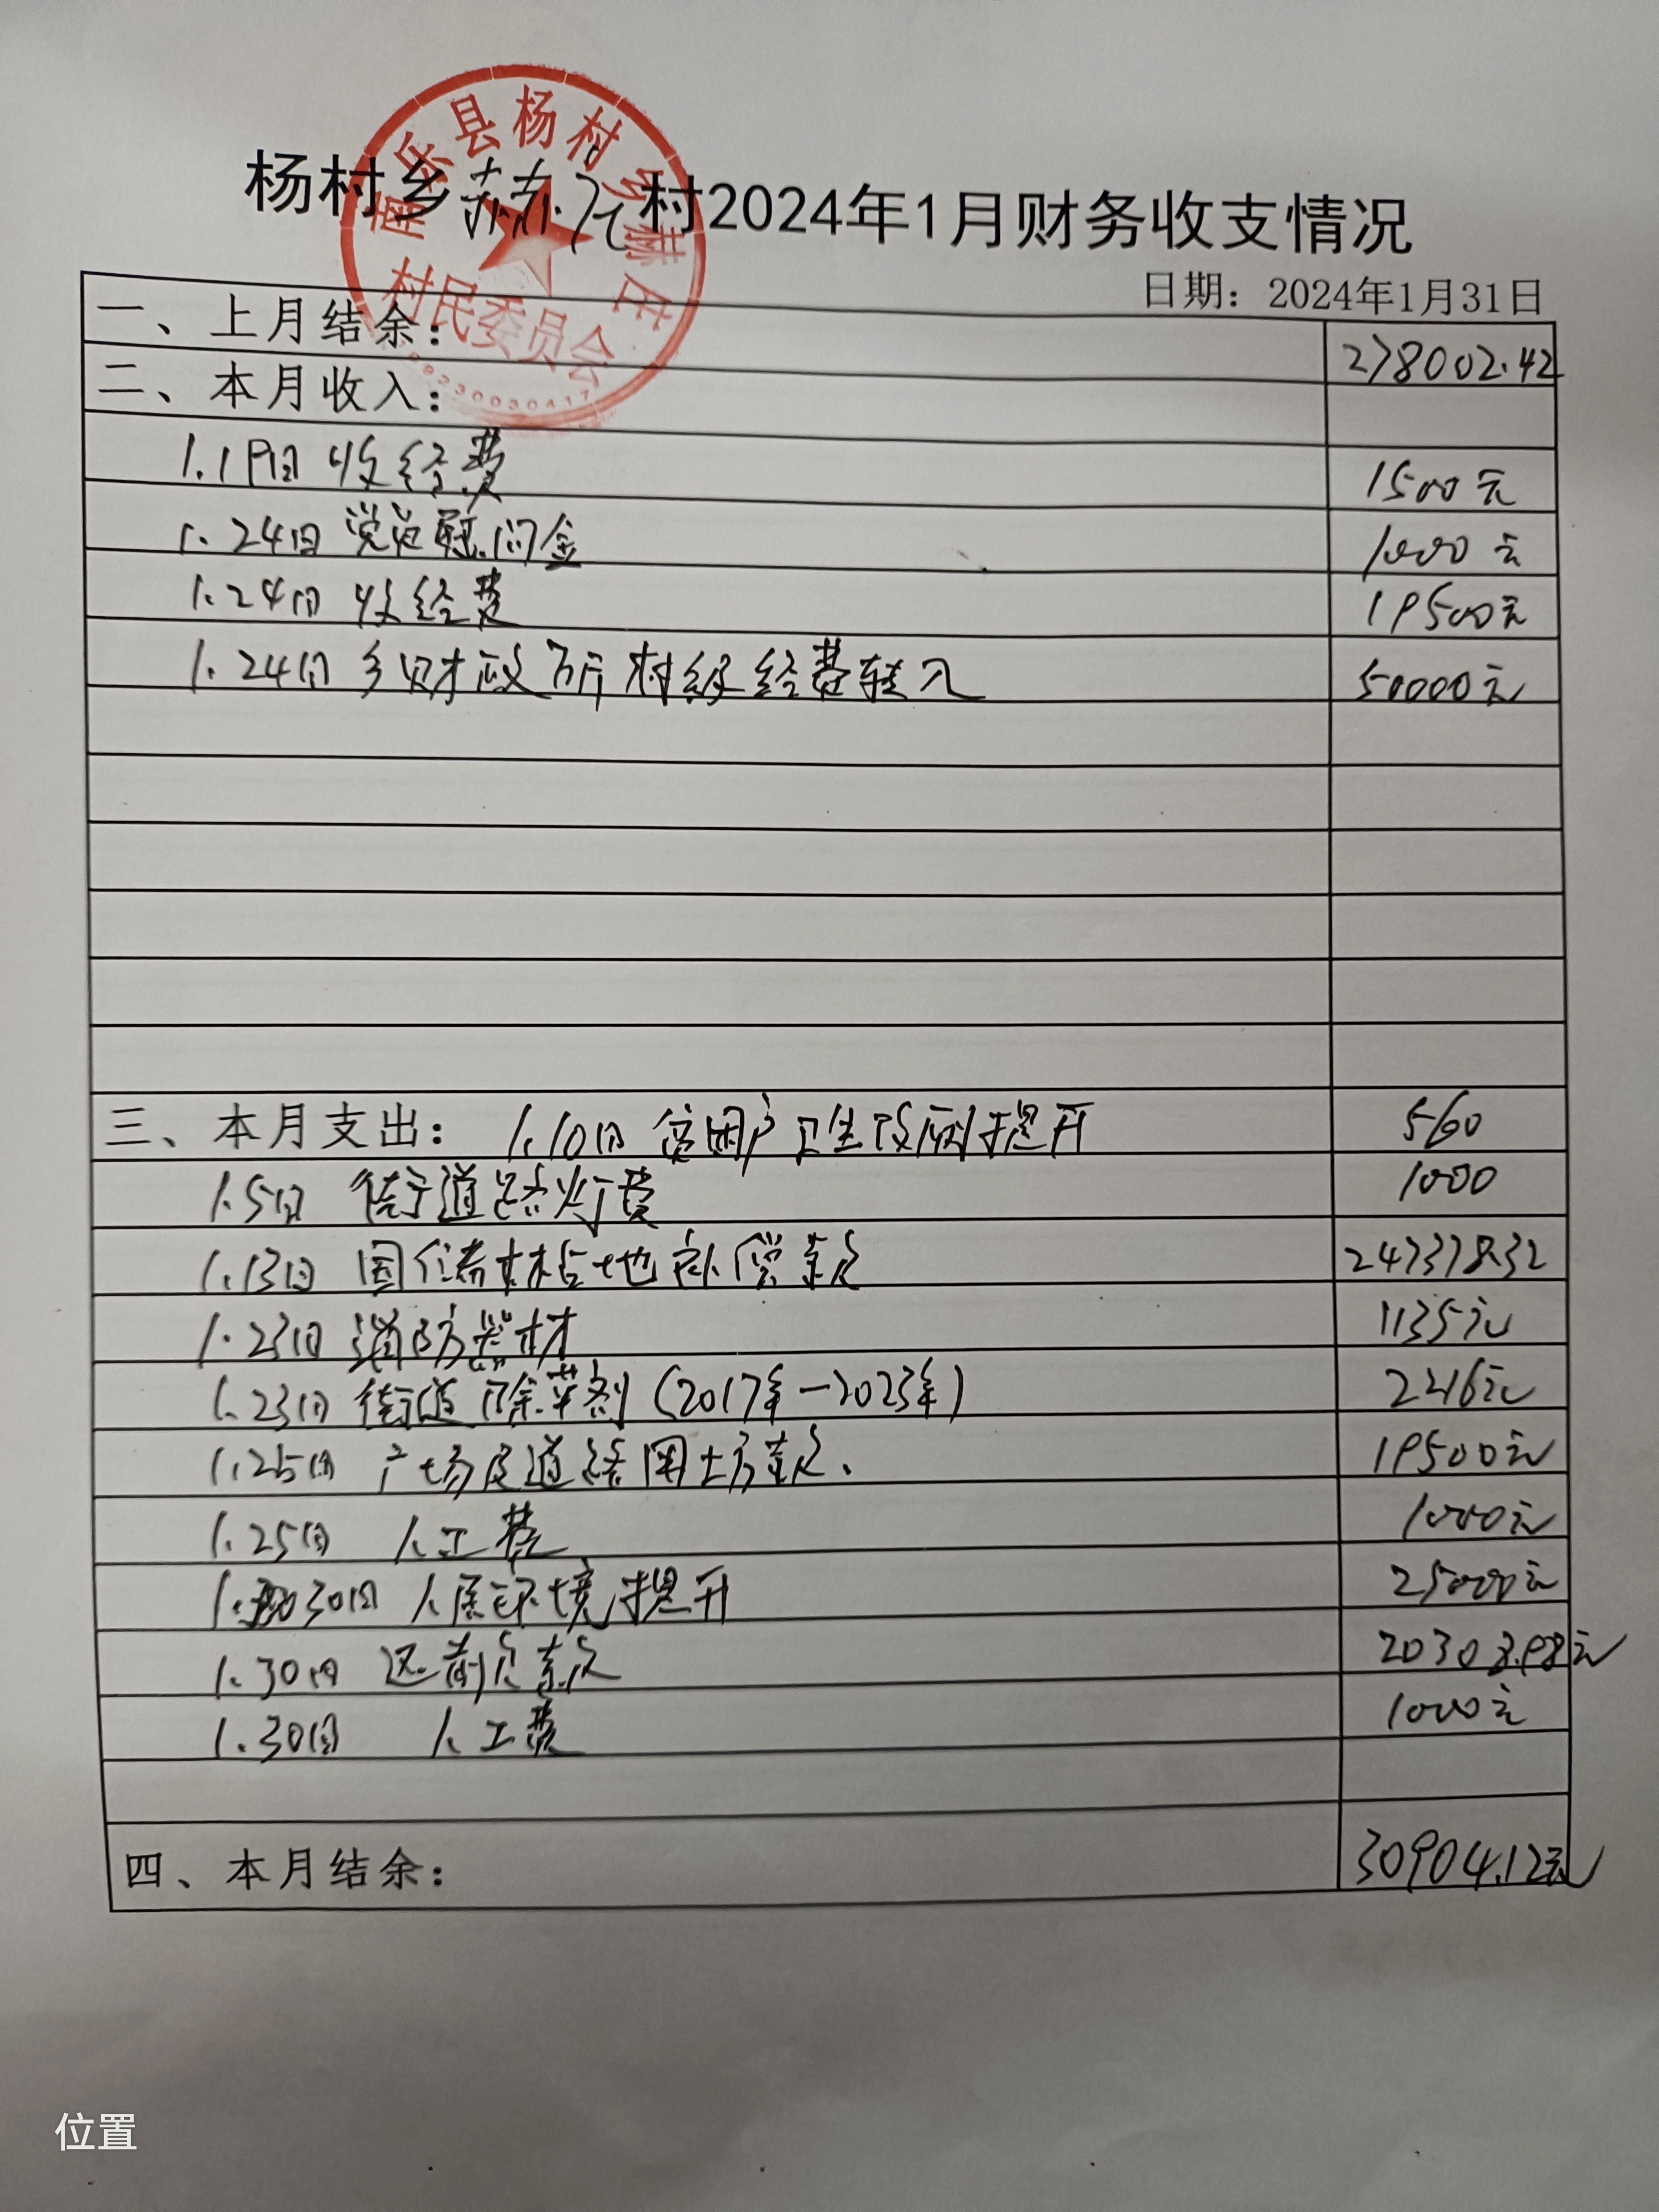 南乐县杨村乡赫庄
村民委员会
杨村乡赫庄村2024年1月财务收支情况
日期：2024年1月31日
一、上月结余： 278002.42
二、本月收入：
1.19日 收经费 1500元
1.24日 党员慰问金 1000元
1.24日 收经费 19500元
1.24日 乡财政所村级经费转入 50000元
三、本月支出： 1.10日 贫困户卫生改厕提升 560
1.5日 街道路灯费 1000
1.13日 国储林占地补偿款 247378.32
1.23日 消防器材 1135元
1.23日 街道除草剂（2017年—2023年） 2216元
1.25日 广场及道路用土方款. 19500元
1.25日 人工费 1000元
1.30日 人居环境提升 25000元
1.30日 还前款 20308.98元
1.30日 人工费 1000元
四、本月结余： 30904.12元
位置